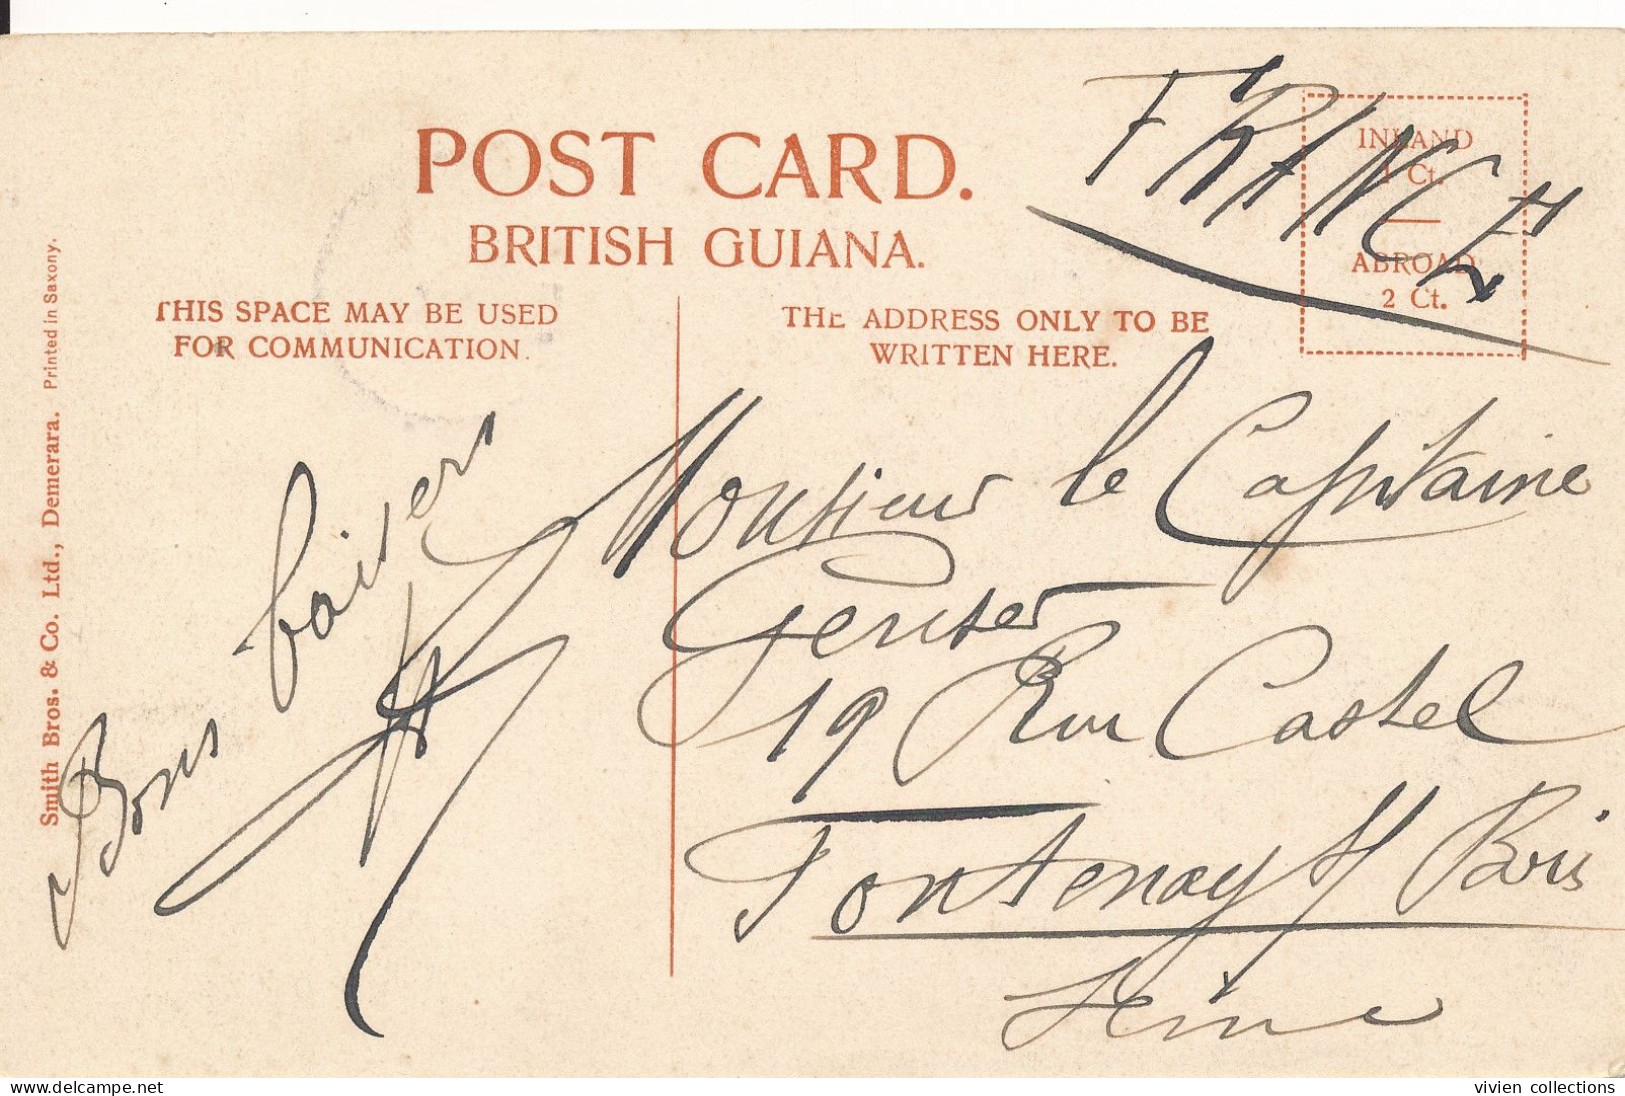 POST CARD.
BRITISH GUIANA.
FRANCE
INLAND
1 Ct.
ABROAD
2 Ct.
THIS SPACE MAY BE USED
FOR COMMUNICATION.
THE ADDRESS ONLY TO BE
WRITTEN HERE.
Smith Bros. & Co. Ltd., Demerara. Printed in Saxony.
Bons baisers
Monsieur le Capitaine
19 Rue Castel
Fontenay s/ Bois
Seine
www.delcampe.net
vivien collections